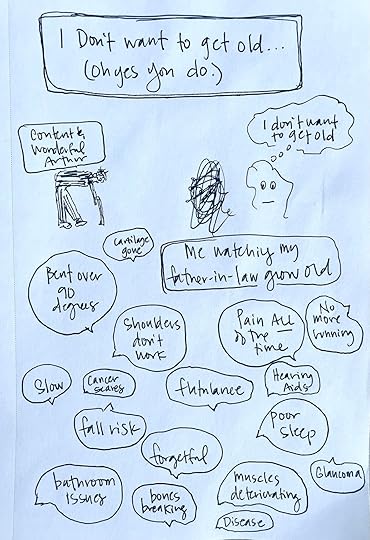 I Don't want to get old...
(Oh yes you do.)
Content &
Wonderful
Arthur
I don't want
to get old
Cartilage
gone
Me watching my
father-in-law grow old
Bent over
90
degrees
Shoulders
don't
work
Pain ALL
of the
time
No
more
running
Slow
Cancer
scares
flatulance
Hearing
Aids
fall risk
poor
sleep
forgetful
Glaucoma
bathroom
issues
bones
breaking
muscles
deteriorating
Disease